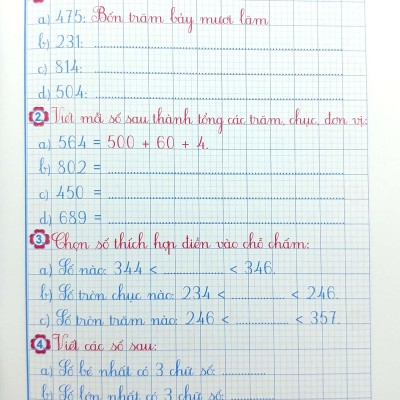 a) 475: Bốn trăm bảy mươi lăm
b) 231: ..............................
c) 814: ..............................
d) 504: ..............................
2 Viết mỗi số sau thành tổng các trăm, chục, đơn vị:
a) 564 = 500 + 60 + 4.
b) 802 = ..............................
c) 450 = ..............................
d) 689 = ..............................
3 Chọn số thích hợp điền vào chỗ chấm:
a) Số nào: 344 < .............. < 346.
b) Số tròn chục nào: 234 < .............. < 246.
c) Số tròn trăm nào: 246 < .............. < 357.
4 Viết các số sau:
a) Số bé nhất có 3 chữ số: ..............
b) Số lớn nhất có 3 chữ số: ..............